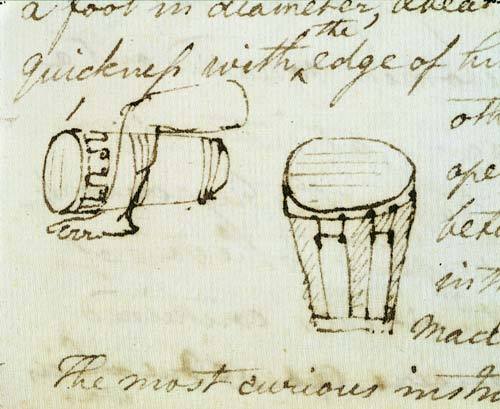 a foot in diameter,
the
quickneſs with ‸ edge of hi
oth
ope
in
mad
The most curious instr